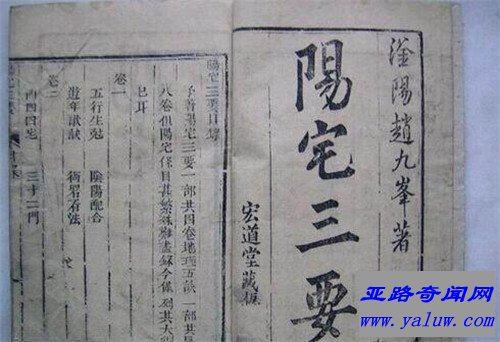 滏陽趙九峯著
陽宅三要
宏道堂藏板
陽宅三要目錄
予著陽宅三要一部共四卷地理五訣一部
八卷但陽宅條目甚繁殊難盡錄今僅列其大
已耳
卷一
五行生尅 陰陽配合
遊年歌訣 衙署看法
卷二
三十二門
亚路奇闻网
www.yaluw.com